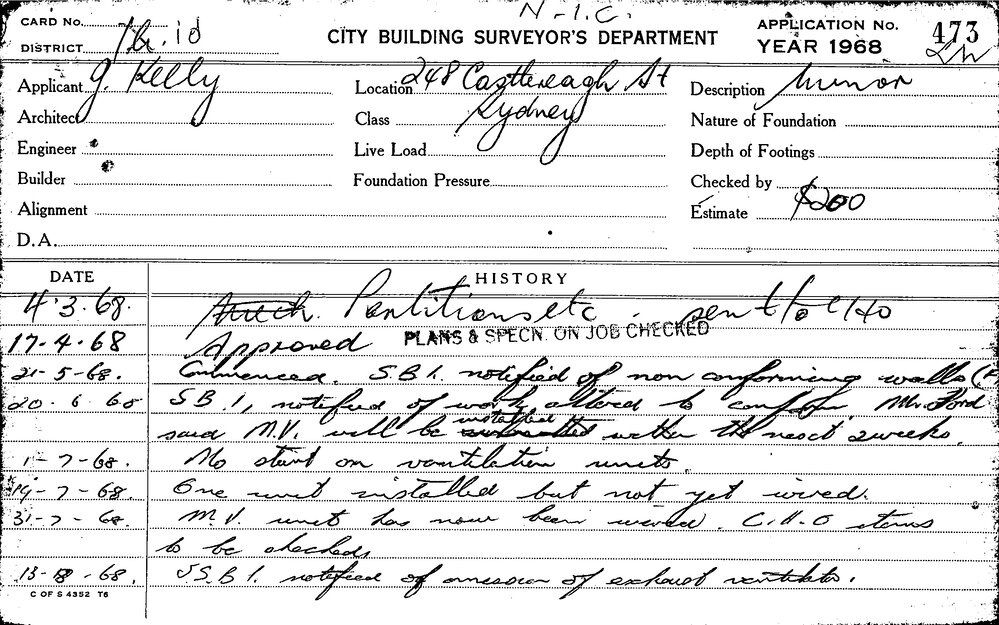 N.I.C.
CARD No.
CITY BUILDING SURVEYOR'S DEPARTMENT
APPLICATION No. 473
DISTRICT
YEAR 1968
Applicant J. Kelly
Location 248 Castlereagh St
Sydney
Description Minor
Architect
Class
Nature of Foundation
Engineer
Live Load
Depth of Footings
Builder
Foundation Pressure
Checked by
Alignment
Estimate $200
D.A.
DATE HISTORY
4.3.68. Partitions etc. sent to CHO
17-4-68 Approved PLANS & SPECN. ON JOB CHECKED
21-5-68. Commenced. S.B.1. notified of non conforming walls
20.6.68 S.B.1, notified of work altered to conform. Mr. Ford
said M.V. will be installed within the next 2 weeks.
1-7-68. No start on ventilation units.
19-7-68. One unit installed but not yet wired.
31-7-68. M.V. unit has now been wired. C.H.O items
to be checked,
13-8-68. S.B.1. notified of omission of exhaust ventilator.
C OF S 4352 T6